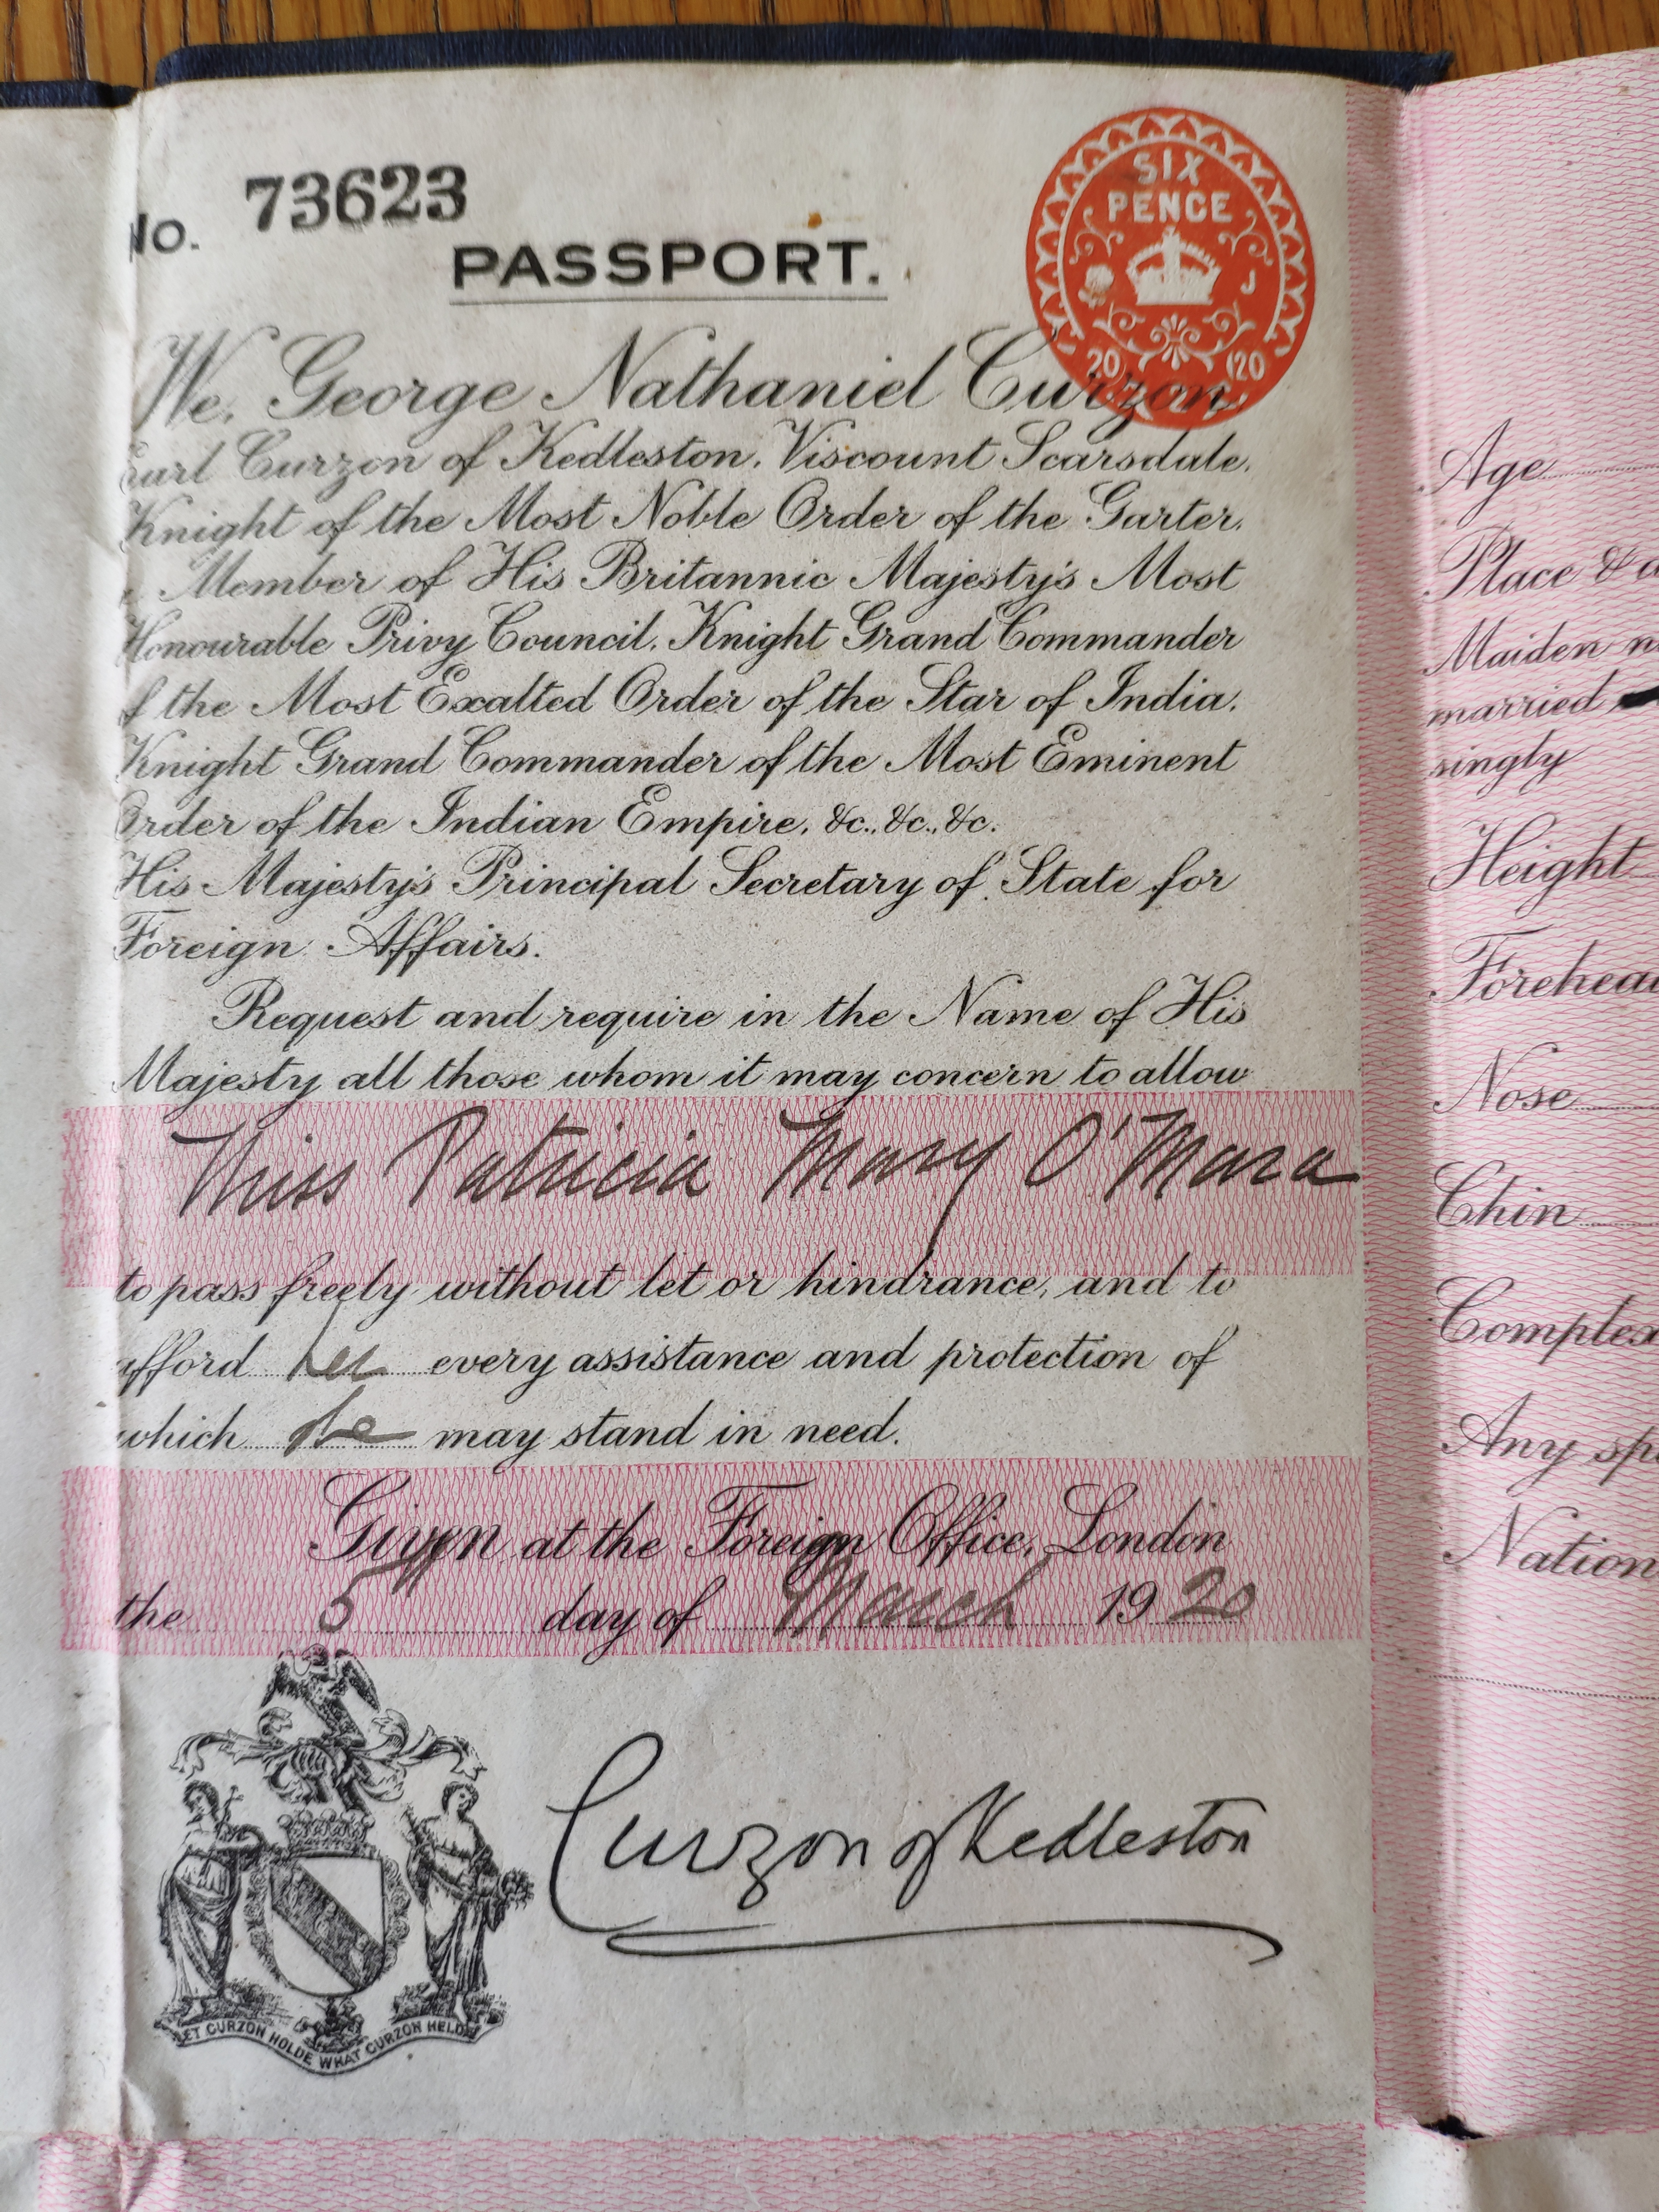 No. 73623
PASSPORT.
SIX
PENCE
J
20 1 20
We, George Nathaniel Curzon,
Earl Curzon of Kedleston, Viscount Scarsdale,
Knight of the Most Noble Order of the Garter,
Member of His Britannic Majesty's Most
Honourable Privy Council, Knight Grand Commander
of the Most Exalted Order of the Star of India,
Knight Grand Commander of the Most Eminent
Order of the Indian Empire, &c., &c., &c.
His Majesty's Principal Secretary of State for
Foreign Affairs.
Request and require in the Name of His
Majesty all those whom it may concern to allow
Miss Patricia Mary O'Mara
to pass freely without let or hindrance, and to
afford her every assistance and protection of
which she may stand in need.
Given at the Foreign Office, London
the 5 day of March 1920
Curzon of Kedleston
LET CURZON HOLDE WHAT CURZON HELDE
Age
Place &
Maiden
married
singly
Height
Forehead
Nose
Chin
Complex
Any
Nation